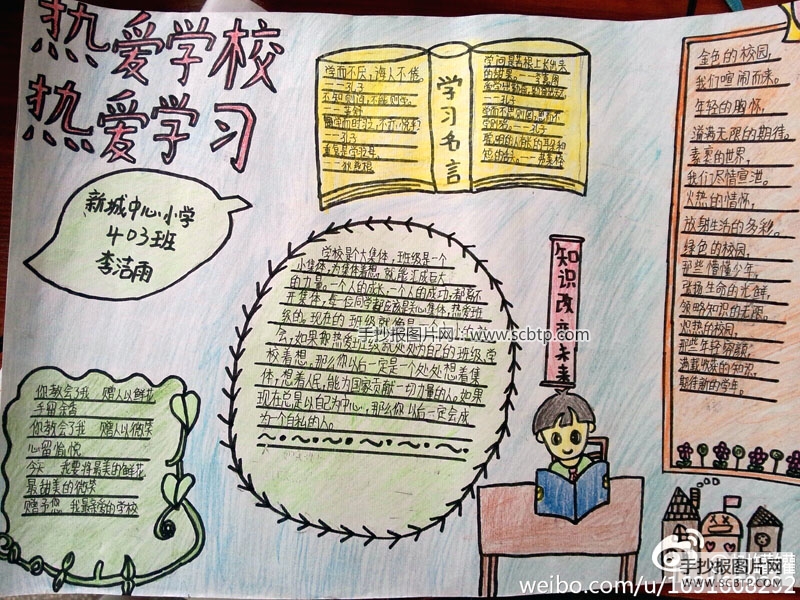 热爱学校
热爱学习
新城中心小学
403班
李洁雨
学习名言
学而不厌，诲人不倦。
——孔子
——孔子
学问是苦根上长出来
——孔子
学校是个大集体，班级是一个
小集体，为集体着想，就能汇成巨大
的力量。一个人的成长，一个人的成功，都离不
开集体，每一位同学都应该关心集体，热爱班
级的。现在的班级就像是一个
会，如果你热爱班级就处处为自己的班级、学
校着想，那么你以后一定是个处处想着集
体，想着人民，能为国家贡献一切力量的人。如果
现在总是以自己为中心，那么你以后一定会成
为一个自私的人。
知识改变未来
金色的校园，
我们喧闹而来。
年轻的胸怀，
溢满无限的期待。
素裹的世界，
我们尽情宣泄。
火热的情怀，
放射生活的多彩。
绿色的校园，
那些懵懂少年，
弘扬生命的光鲜，
领略知识的无限。
炽热的校园，
那些年轻容颜，
满载收获的知识，
期待新的学年。
你教会了我 赠人以鲜花
手留余香
你教会了我 赠人以微笑
心留愉悦
今天 我要将最美的鲜花
最甜美的微笑
赠予您 我最亲爱的学校
手抄报图片网 www.scbtp.com
手抄报图片网
www.scbtp.com